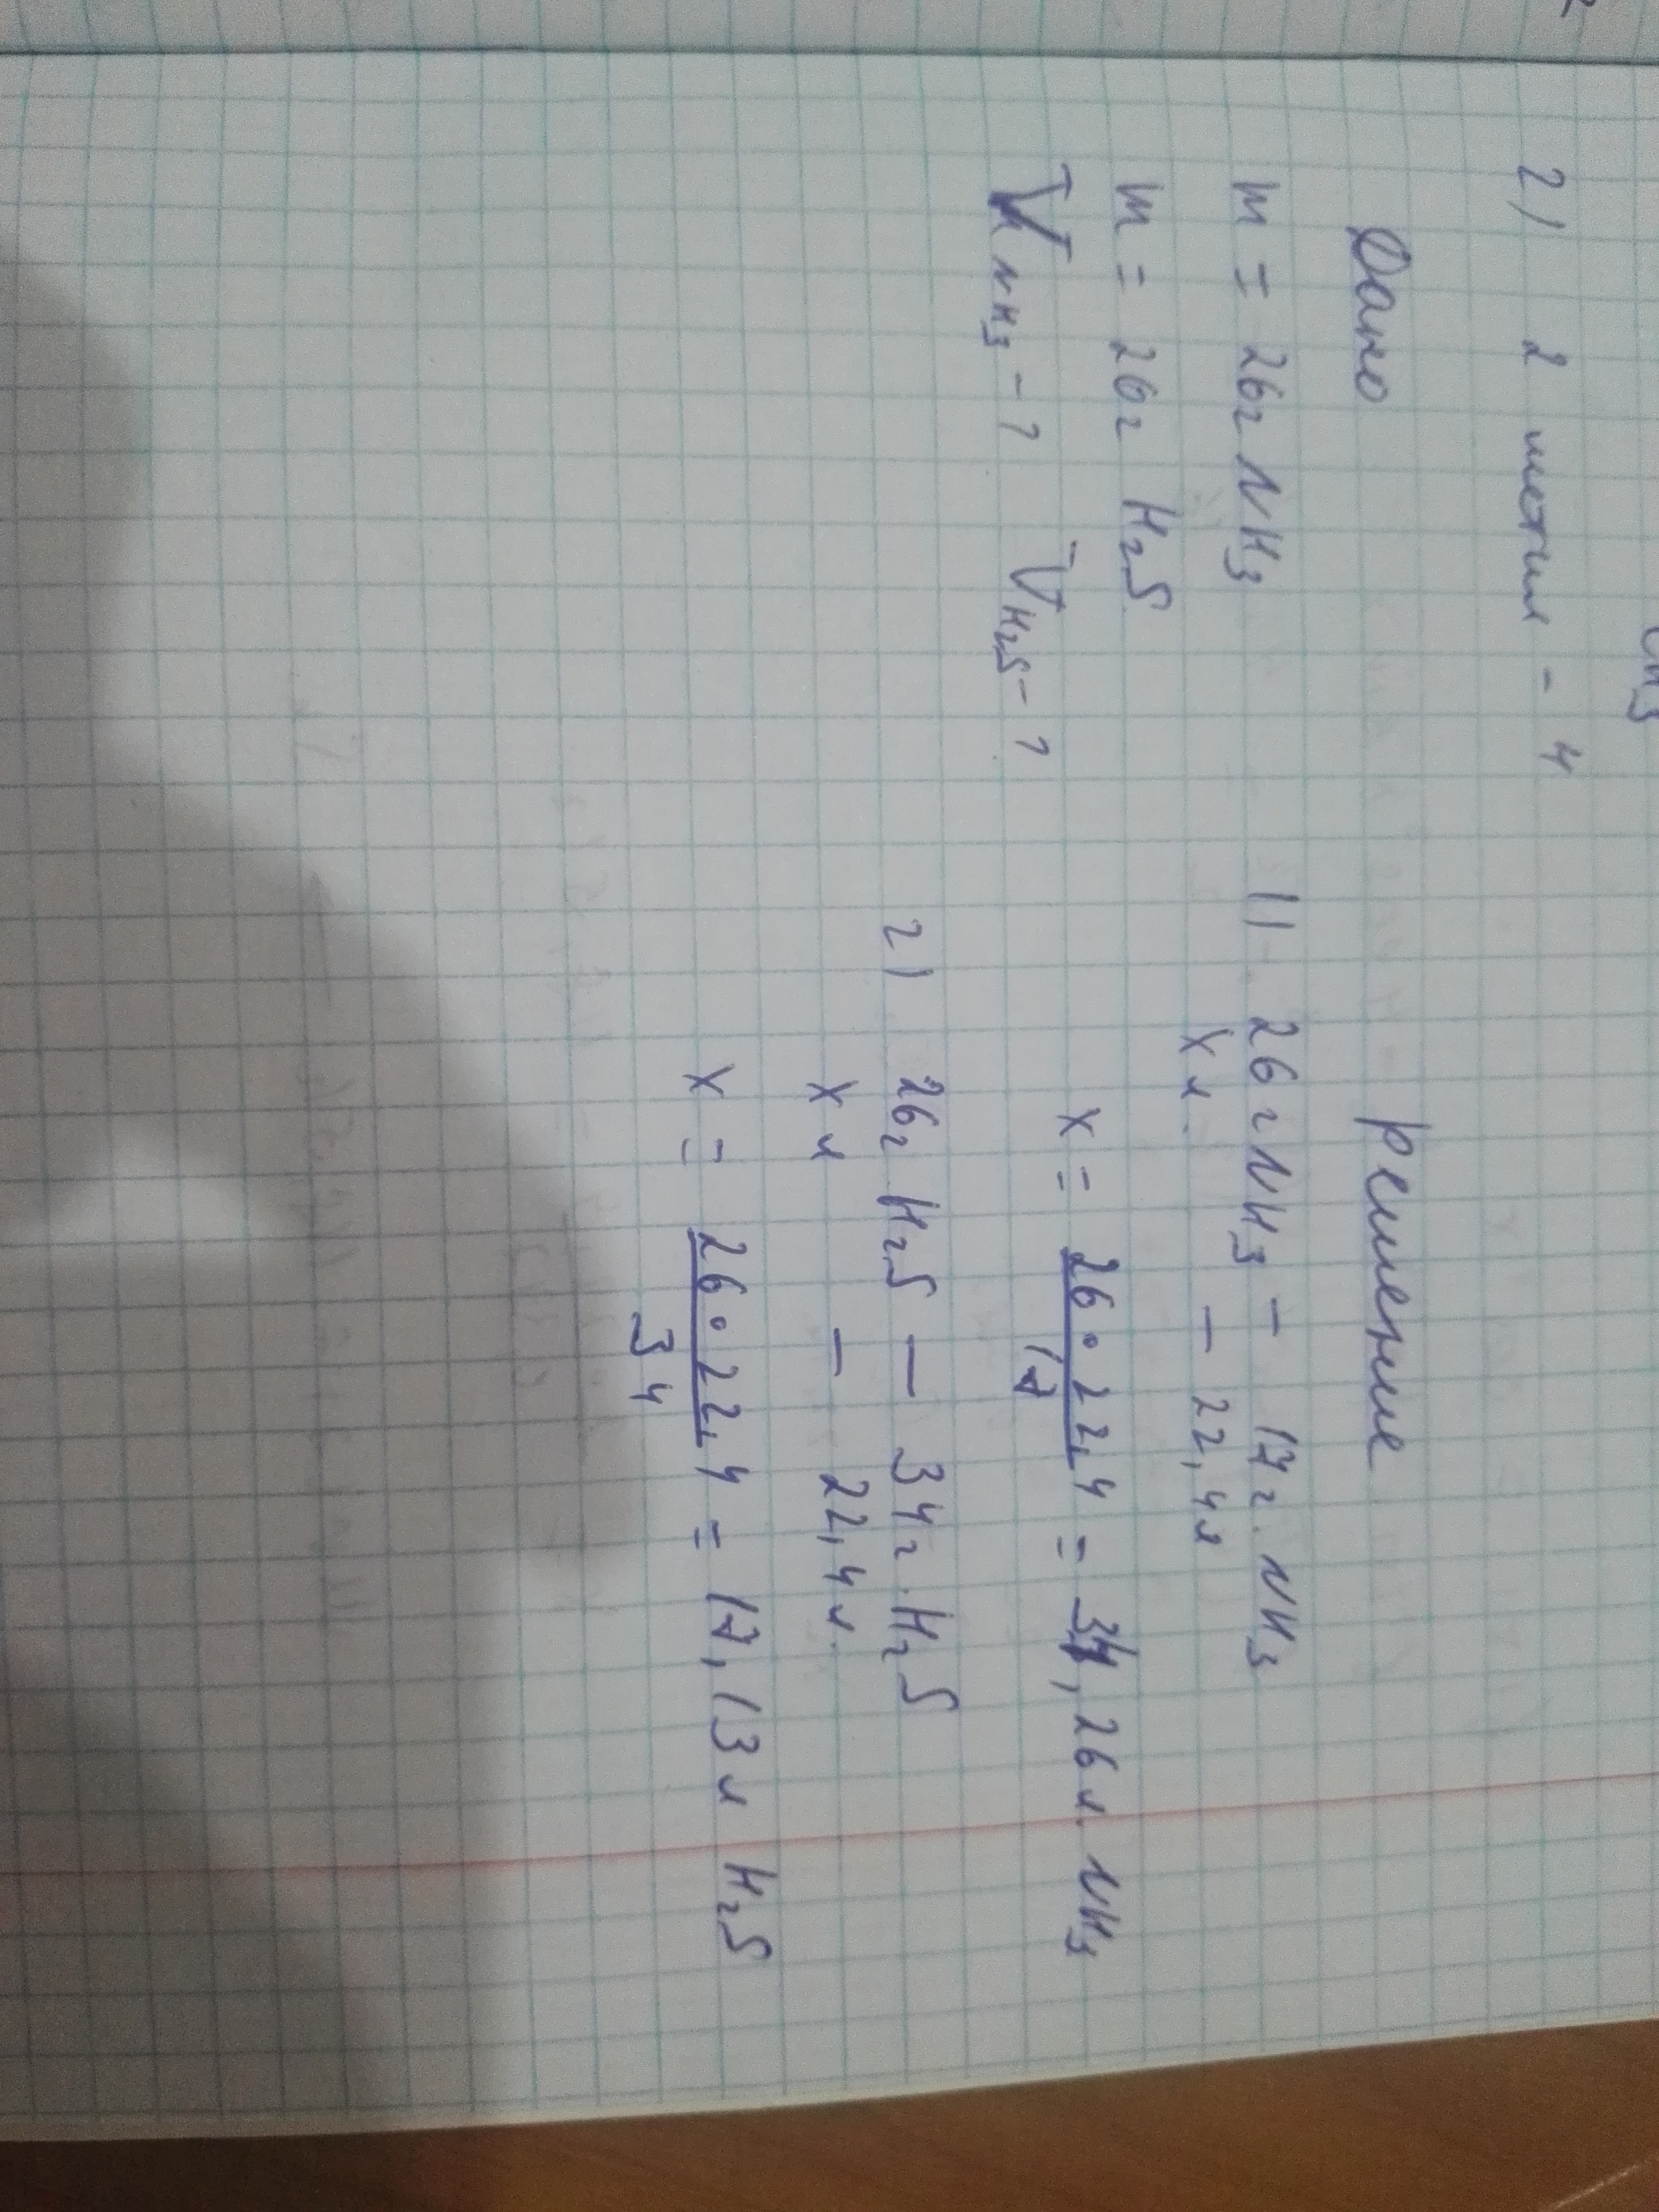 CH3
2) 2 метил - 4
Дано
m = 26г NH3
m = 26г H2S
V NH3 - ? V H2S - ?
Решение
1) 26г NH3 - 17г. NH3
х л. - 22,4л
х = 26 • 22,4 / 17 = 34,26л. NH3
2) 26г H2S - 34г. H2S
х л - 22,4л.
х = 26 • 22,4 / 34 = 17,13л H2S